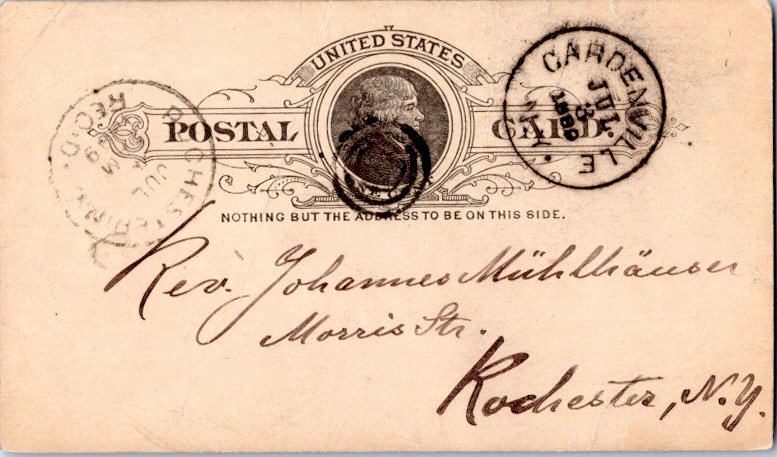 UNITED STATES
POSTAL CARD.
ONE CENT
NOTHING BUT THE ADDRESS TO BE ON THIS SIDE.
GARDENVILLE N.Y.
JUL
3
1889
ROCHESTER, N.Y.
JUL
REC'D.
Rev. Johannes Mühlhäuser
Morris Str.
Rochester, N.Y.